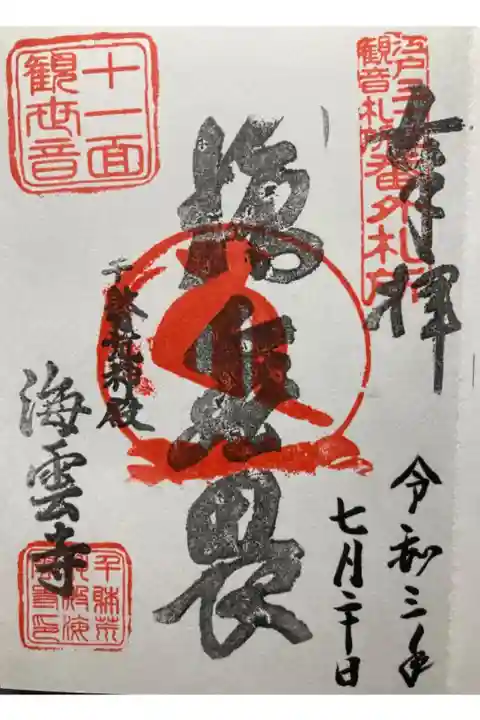 奉拝
江戸三十三
観音札所番外札所
令和三年
七月二十日
施無畏
十一面
観世音
千躰荒神殿
海雲寺
千躰荒
神殿海
雲寺印